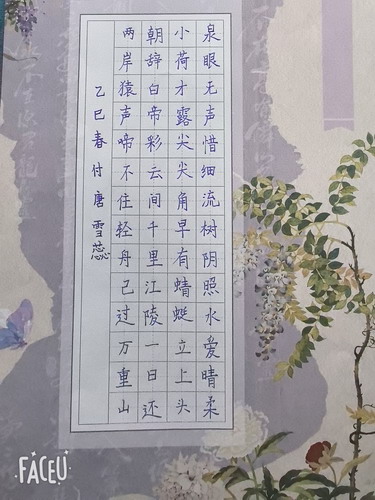 泉眼无声惜细流树阴照水爱晴柔
小荷才露尖尖角早有蜻蜓立上头
朝辞白帝彩云间千里江陵一日还
两岸猿声啼不住轻舟已过万重山
乙巳春付唐雪蕊
FACEU